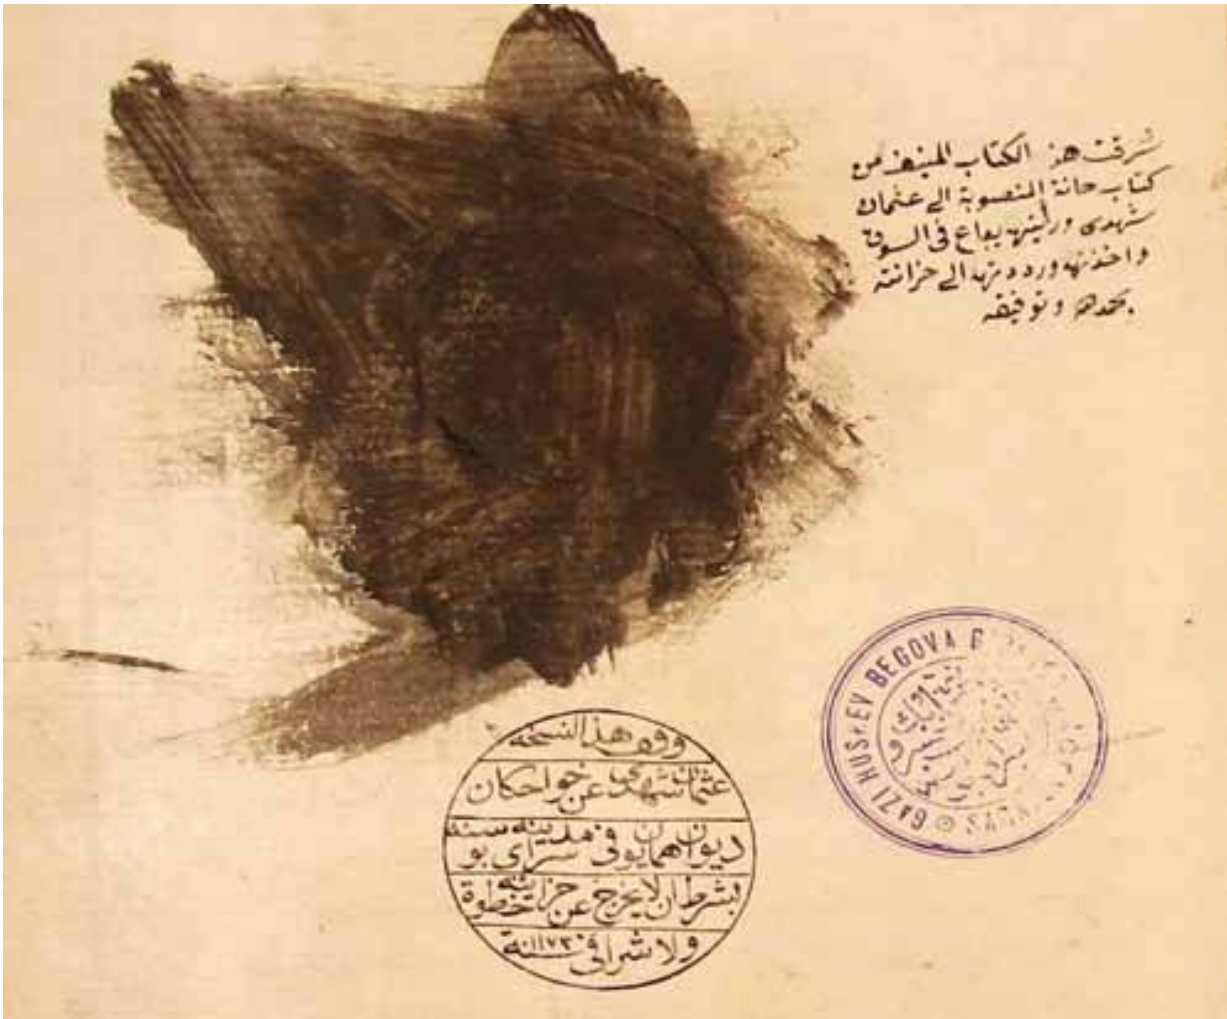 سرقت هذ الكتاب المنيف من
كتاب خانة المنصوبة الى عثمان
شهدى ورأيته يباع فى السوق
واخذته ورددته الى خزانته
بحمده وتوفيقه
وقف هذ النسخة
عثمان شهدى عن خواجكان
ديوان همايون فى مدينة سراى بوسنه
بشرط ان لا يخرج عن خزانته خطوة
ولا شبرا فى سنة ١١٧٣
GAZI HUSREV BEGOVA